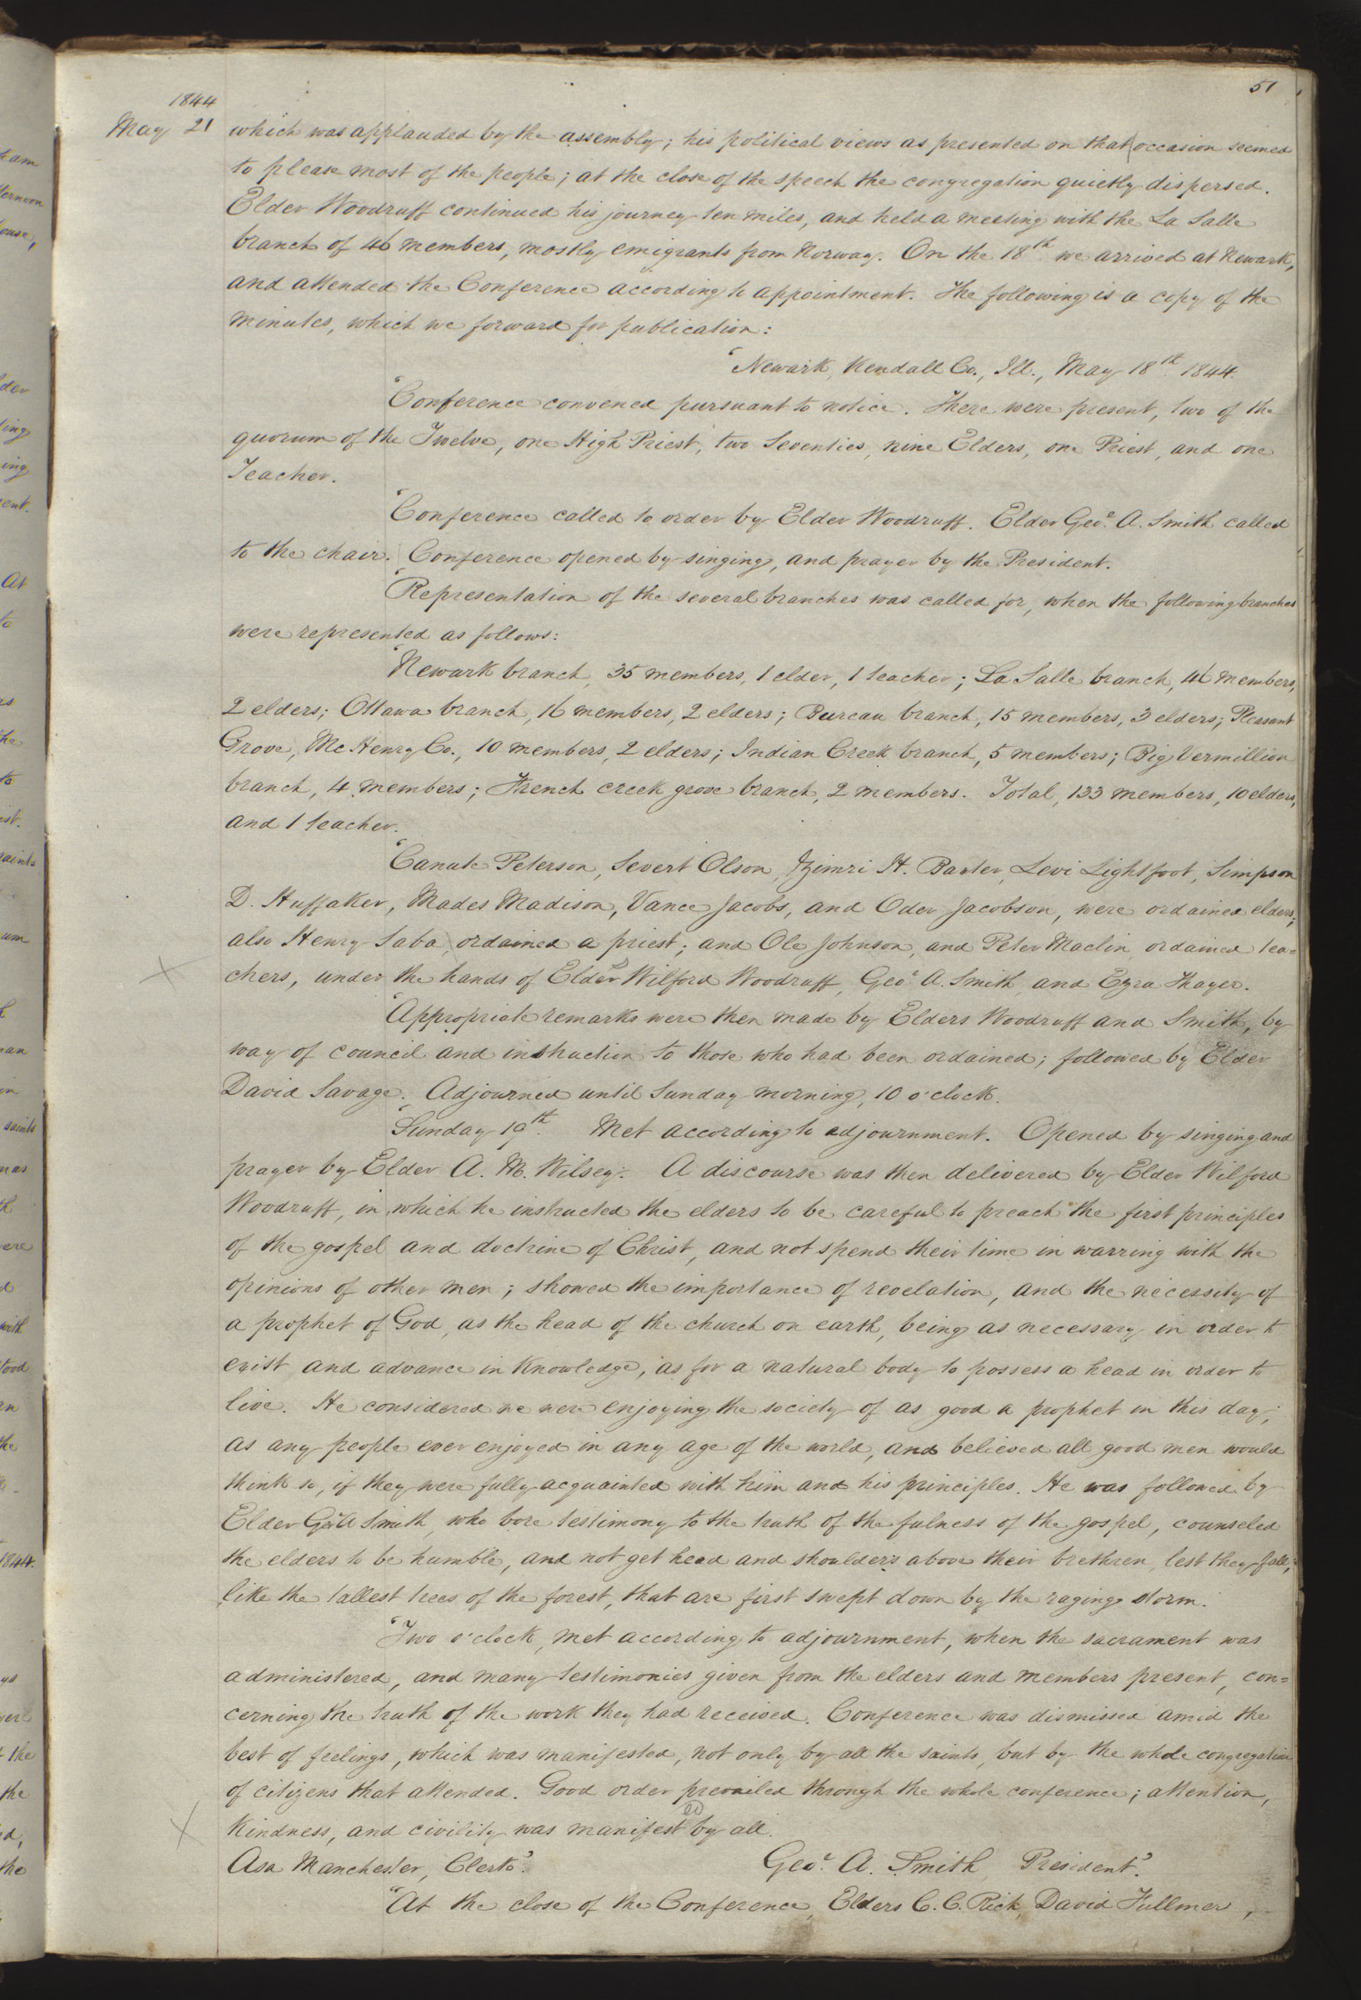 51
1844
May 21 which was applauded by the assembly; his political views as presented on that occasion seemed
to please most of the people; at the close of the speech the congregation quietly dispersed.
Elder Woodruff continued his journey ten miles, and held a meeting with the La Salle
branch of 46 members, mostly emigrants from Norway. On the 18th we arrived at Newark,
and attended the Conference according to appointment. The following is a copy of the
minutes, which we forward for publication:
'Newark, Kendall Co., Ill., May 18th 1844.
'Conference convened pursuant to notice. There were present, two of the
quorum of the Twelve, one High Priest, two Seventies, nine Elders, one Priest, and one
Teacher.
'Conference called to order by Elder Woodruff. Elder Geo. A. Smith called
to the chair. Conference opened by singing, and prayer by the President.
'Representation of the several branches was called for, when the following branches
were represented as follows:
'Newark branch, 35 members, 1 elder, 1 teacher; La Salle branch, 46 members,
2 elders; Ottawa branch, 16 members, 2 elders; Bureau branch, 15 members, 3 elders; Pleasant
Grove, Mc Henry Co., 10 members, 2 elders; Indian Creek branch, 5 members; Big Vermillion
branch, 4 members; French creek grove branch, 2 members. Total, 133 members, 10 elders,
and 1 teacher.
'Canute Peterson, Severt Olson, Zimri H. Baxter, Levi Lightfoot, Simpson
D. Huffaker, Mades Madison, Vance Jacobs, and Oder Jacobson, were ordained elders;
also Henry Saba, ordained a priest; and Ole Johnson, and Peter Maclin, ordained tea=
chers, under the hands of Elders Wilford Woodruff, Geo. A. Smith, and Ezra Thayer.
'Appropriate remarks were then made by Elders Woodruff and Smith, by
way of council and instruction to those who had been ordained; followed by Elder
David Savage. Adjourned until Sunday morning, 10 o'clock.
'Sunday 19th. Met according to adjournment. Opened by singing and
prayer by Elder A. M. Wilsey. A discourse was then delivered by Elder Wilford
Woodruff, in which he instructed the elders to be careful to preach the first principles
of the gospel and doctrine of Christ, and not spend their time in warring with the
opinions of other men; showed the importance of revelation, and the necessity of
a prophet of God, as the head of the church on earth, being as necessary in order to
exist and advance in knowledge, as for a natural body to possess a head in order to
live. He considered we were enjoying the society of as good a prophet in this day;
as any people ever enjoyed in any age of the world, and believed all good men would
think so, if they were fully acquainted with him and his principles. He was followed by
Elder Geo. A Smith, who bore testimony to the truth of the fulness of the gospel, counseled
the elders to be humble, and not get head and shoulders above their brethren, lest they fall,
like the tallest trees of the forest, that are first swept down by the raging storm.
'Two o'clock, met according to adjournment, when the sacrament was
administered, and many testimonies given from the elders and members present, con=
cerning the truth of the work they had received. Conference was dismissed amid the
best of feelings, which was manifested, not only by all the saints, but by the whole congregation
of citizens that attended. Good order prevailed through the whole conference; attention,
kindness, and civility was manifested by all.
Asa Manchester, Clerk'. Geo. A. Smith, President'.
"At the close of the Conference, Elders C. C. Rich, David Fullmer,